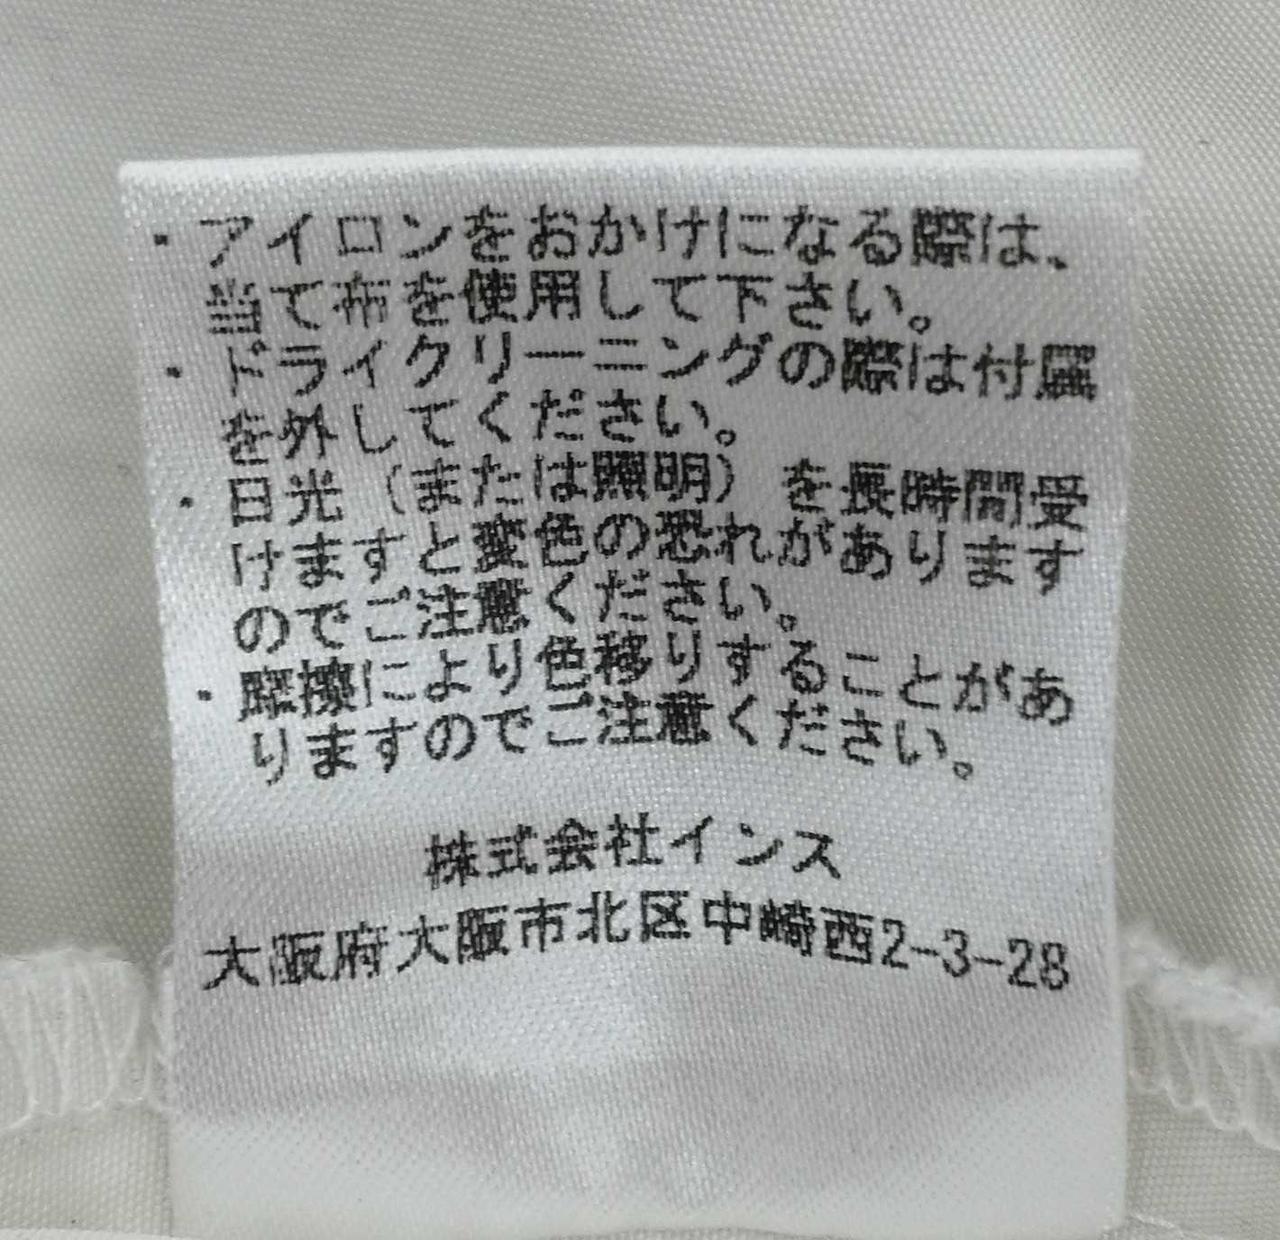 ・アイロンをおかけになる際は、
当て布を使用して下さい。
・ドライクリーニングの際は付属
を外してください。
・日光（または照明）を長時間受
けますと変色の恐れがあります
のでご注意ください。
・摩擦により色移りすることがあ
りますのでご注意ください。
株式会社インス
大阪府大阪市北区中崎西2-3-28